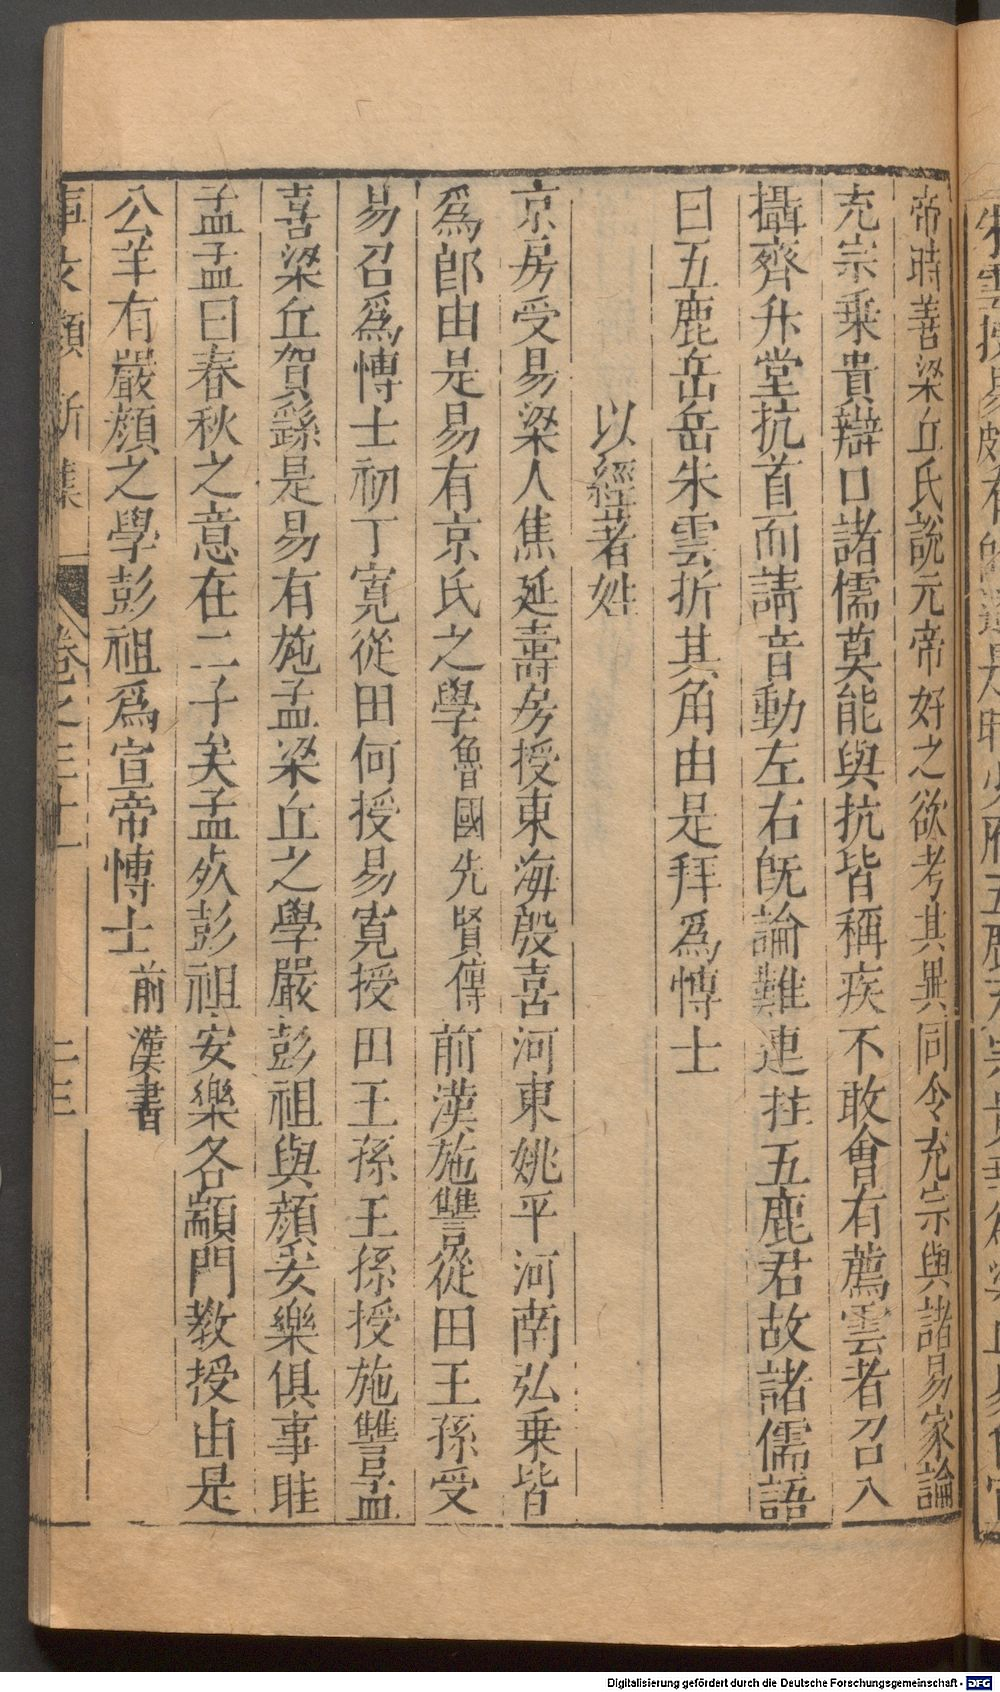 帝時善梁丘氏說元帝好之欲考其異同令充宗與諸易家論
充宗乗貴辯口諸儒莫能與抗皆稱疾不敢會有薦雲者召入
攝齊升堂抗首而請音動左右旣論難連拄五鹿君故諸儒語
曰五鹿岳岳朱雲折其角由是拜爲愽士
以經著姓
京房受易梁人焦延壽房授東海殷喜河東姚平河南弘乗皆
爲郎由是易有京氏之學魯國先賢傳前漢施讐從田王孫受
易召爲愽士初丁寛從田何授易寛授田王孫王孫授施讐孟
喜梁丘賀繇是易有施孟梁丘之學嚴彭祖與顔安樂俱事眭
孟孟曰春秋之意在二子矣孟𣦸彭祖安樂各顓門教授由是
公羊有嚴顔之學彭祖爲宣帝愽士前漢書
事文類新集 卷之三十一 二三
Digitalisierung gefördert durch die Deutsche Forschungsgemeinschaft - DFG